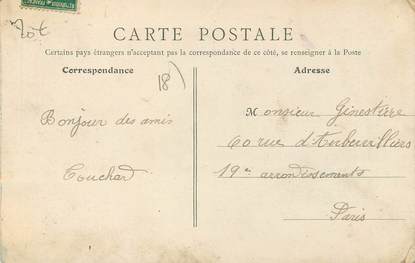 Lot
CARTE POSTALE
Certains pays étrangers n'acceptant pas la correspondance de ce côté, se renseigner à la Poste
Correspondance
18)
Bonjour des amis
Couchard
Adresse
Monsieur Ginestière
60 rue d'Auberwilliers
19e arrondissements
Paris